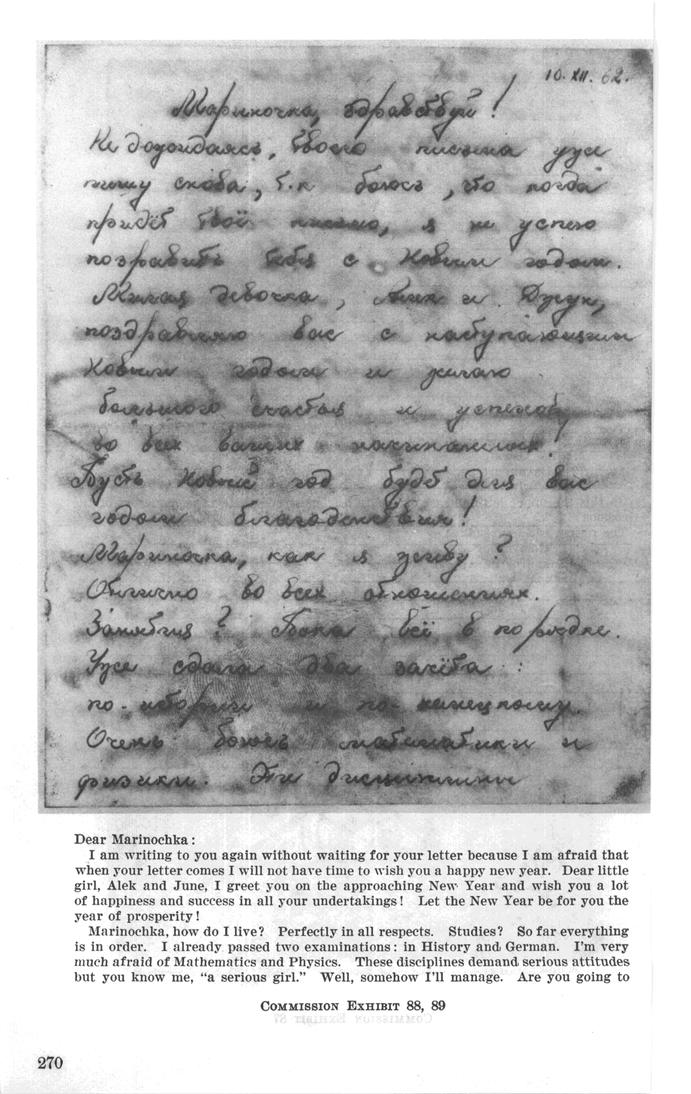 10.XII.62.
Мариночка, здравствуй!
Не дождаясь, твоего письма уже
пишу снова, т.к боюсь, что когда
придёт твоё письмо, я не успею
поздравить тебя с Новым годом.
Милая девочка, Алик и Джун,
поздравляю вас с наступающим
Новым годом и желаю
большого счастья и успехов
во всех ваших начинаниях!
Пусть Новый год будет для вас
годом благоденствия!
Мариночка, как я живу?
Отлично во всех отношениях.
Занятия? Пока всё в порядке.
Уже сдала два зачёта:
по-истории и по-немецкому.
Очень боюсь математики и
физики. Эти дисциплины
Dear Marinochka:
I am writing to you again without waiting for your letter because I am afraid that
when your letter comes I will not have time to wish you a happy new year. Dear little
girl, Alek and June, I greet you on the approaching New Year and wish you a lot
of happiness and success in all your undertakings! Let the New Year be for you the
year of prosperity!
Marinochka, how do I live? Perfectly in all respects. Studies? So far everything
is in order. I already passed two examinations: in History and German. I'm very
much afraid of Mathematics and Physics. These disciplines demand serious attitudes
but you know me, "a serious girl." Well, somehow I'll manage. Are you going to
COMMISSION EXHIBIT 88, 89
270